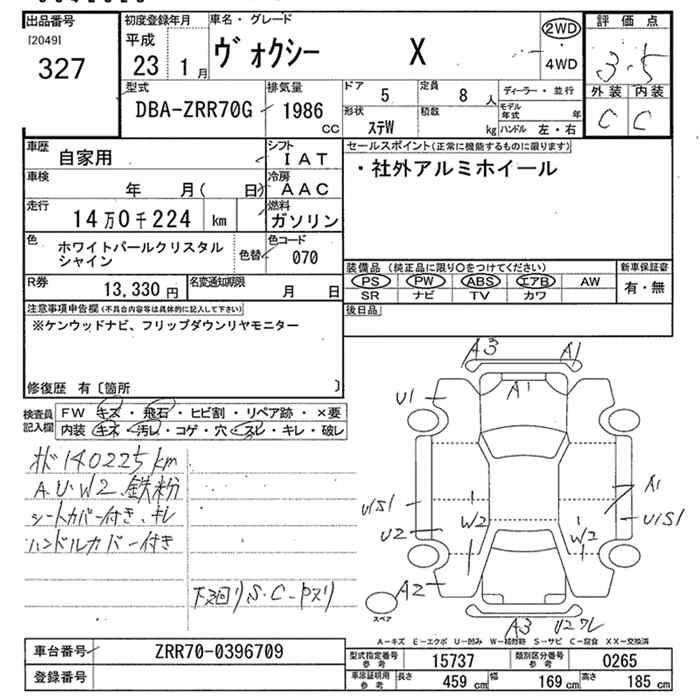 出品番号
[2049]
327
初度登録年月
平成
23 1月
車名・グレード
ヴォクシー X
2WD
4WD
評価点
3.5
外装 内装
C C
型式
DBA-ZRR70G
排気量
1986
CC
ドア
5
定員
8 人
形状
ステW
積数
kg
ディーラー・並行
モデル年式 年
ハンドル 左・右
車歴
自家用
シフト
IAT
車検
年 月( 日)
冷房
AAC
走行
14万0千224 km
燃料
ガソリン
色
ホワイトパールクリスタル
シャイン
色替
色コード
070
R券
13,330 円
名変通知期限
月 日
セールスポイント(正常に機能するものに限ります)
・社外アルミホイール
装備品(純正品に限り○をつけてください)
新車保証書
PS PW ABS エアB AW
SR ナビ TV カワ
有・無
後日品
注意事項申告欄(不具合内容等は具体的に記入して下さい)
※ケンウッドナビ、フリップダウンリヤモニター
修復歴 有〔箇所 〕
検査員
記入欄
FW キズ・飛石・ヒビ割・リペア跡・×要
内装 キズ・汚レ・コゲ・穴・スレ・キレ・破レ
140225km
A.U.W2.鉄粉
シートカバー付き.キレ
ハンドルカバー付き
下廻りS.C-
A3 A1
A1
U1
A1
U1S1
U1S1
U2
W2
W2
A2
スペア
A3 U2ワレ
A-キズ E-エクボ U-凹み W-補修跡 S-サビ C-腐食 XX-交換済
車台番号
ZRR70-0396709
登録番号
型式指定番号
参考
15737
類別区分番号
参考
0265
車庫証明用
参考
長さ 459 cm
幅 169 cm
高さ 185 cm